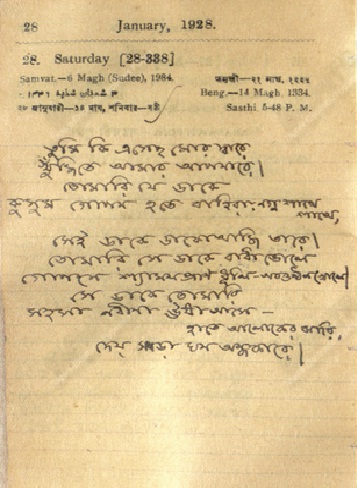 28 January, 1928.
28. Saturday [28-338]
Samvat.—6 Magh (Sudee), 1984.
Beng.—14 Magh, 1334.
Sasthi 5-48 P. M.
তুমি কি এসেছ মোর দ্বারে
খুঁজিতে আমার আপনারে।
তোমারি যে ডাকে
কুসুম গোপন হতে বাহিরায় নগ্ন শাখে শাখে,
সেই ডাকে ডাকো আজি তারে।
তোমারি সে ডাকে বাধা ভোলে
শ্যামল প্রাণ ধূলি-অবগুণ্ঠন খোলে।
সে ডাকে তোমারি
সহসা নবীনা ঊষা আসে —
হাতে আলোকের ঝারি,
দেয় সাড়া ঘন অন্ধকারে।